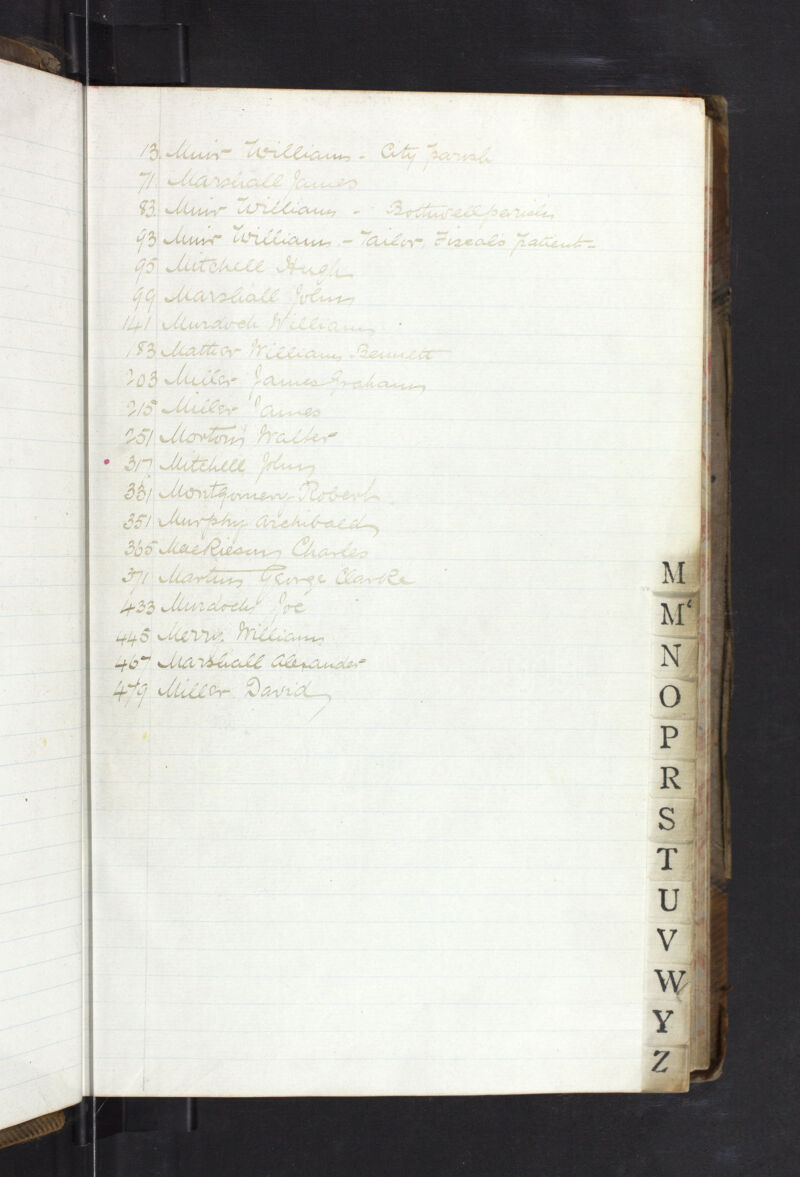 13 Muir William - City parish
71 Marshall James
83 Muir William - Bothwell parish
93 Muir William - Tailor, Fiscal's patient -
95 Mitchell Hugh
99 Marshall John
141 Murdoch William
183 Mather William Bennett
203 Miller James Graham
215 Miller James
251 Morton Walter
317 Mitchell John
331 Montgomery Robert
351 Murphy Archibald
365 Charles
371 Martin George Clarke
433 Murdoch Joe
445 Merry William
467 Marshall Alexander
479 Miller David
M
Mc
N
O
P
R
S
T
U
V
W
Y
Z